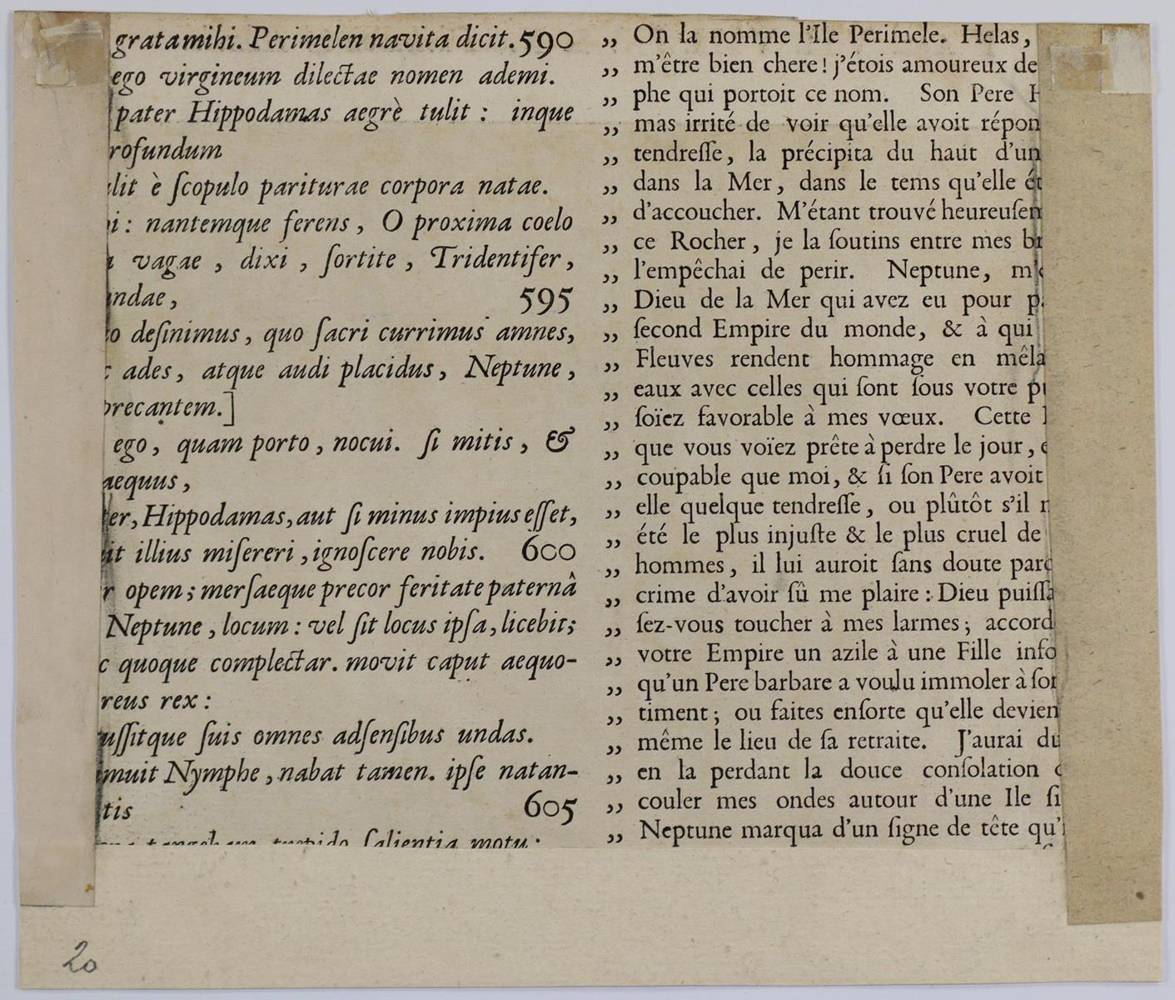 grata mihi. Perimelen navita dicit. 590
ego virgineum dilectae nomen ademi.
pater Hippodamas aegrè tulit : inque
rofundum
lit è ſcopulo pariturae corpora natae.
i : nantemque ferens, O proxima coelo
vagae , dixi , ſortite , Tridentifer,
ndae, 595
o deſinimus, quo ſacri currimus amnes,
ades, atque audi placidus, Neptune,
precantem.]
ego, quam porto, nocui. ſi mitis, &
aequus,
er, Hippodamas, aut ſi minus impius eſſet,
it illius miſereri, ignoſcere nobis. 600
r opem; merſaeque precor feritate paternâ
Neptune, locum : vel ſit locus ipſa, licebit;
c quoque complectar. movit caput aequo-
reus rex :
uſſitque ſuis omnes adſenſibus undas.
muit Nymphe, nabat tamen. ipſe natan-
tis 605
ſalientia motu:
„ On la nomme l'Ile Perimele. Helas,
„ m'être bien chere! j'étois amoureux de
„ phe qui portoit ce nom. Son Pere H
„ mas irrité de voir qu'elle avoit répon
„ tendreſſe, la précipita du haut d'un
„ dans la Mer, dans le tems qu'elle ét
„ d'accoucher. M'étant trouvé heureuſen
„ ce Rocher, je la ſoutins entre mes br
„ l'empêchai de perir. Neptune, m'
„ Dieu de la Mer qui avez eu pour p
„ ſecond Empire du monde, & à qui
„ Fleuves rendent hommage en mêla
„ eaux avec celles qui ſont ſous votre pu
„ ſoïez favorable à mes vœux. Cette
„ que vous voïez prête à perdre le jour,
„ coupable que moi, & ſi ſon Pere avoit
„ elle quelque tendreſſe, ou plûtôt s'il
„ été le plus injuſte & le plus cruel de
„ hommes, il lui auroit ſans doute pard
„ crime d'avoir ſû me plaire : Dieu puiſſa
„ ſez-vous toucher à mes larmes; accord
„ votre Empire un azile à une Fille info
„ qu'un Pere barbare a voulu immoler à ſon
„ timent; ou faites enſorte qu'elle devien
„ même le lieu de ſa retraite. J'aurai du
„ en la perdant la douce conſolation
„ couler mes ondes autour d'une Ile ſi
„ Neptune marqua d'un ſigne de tête qu'
20